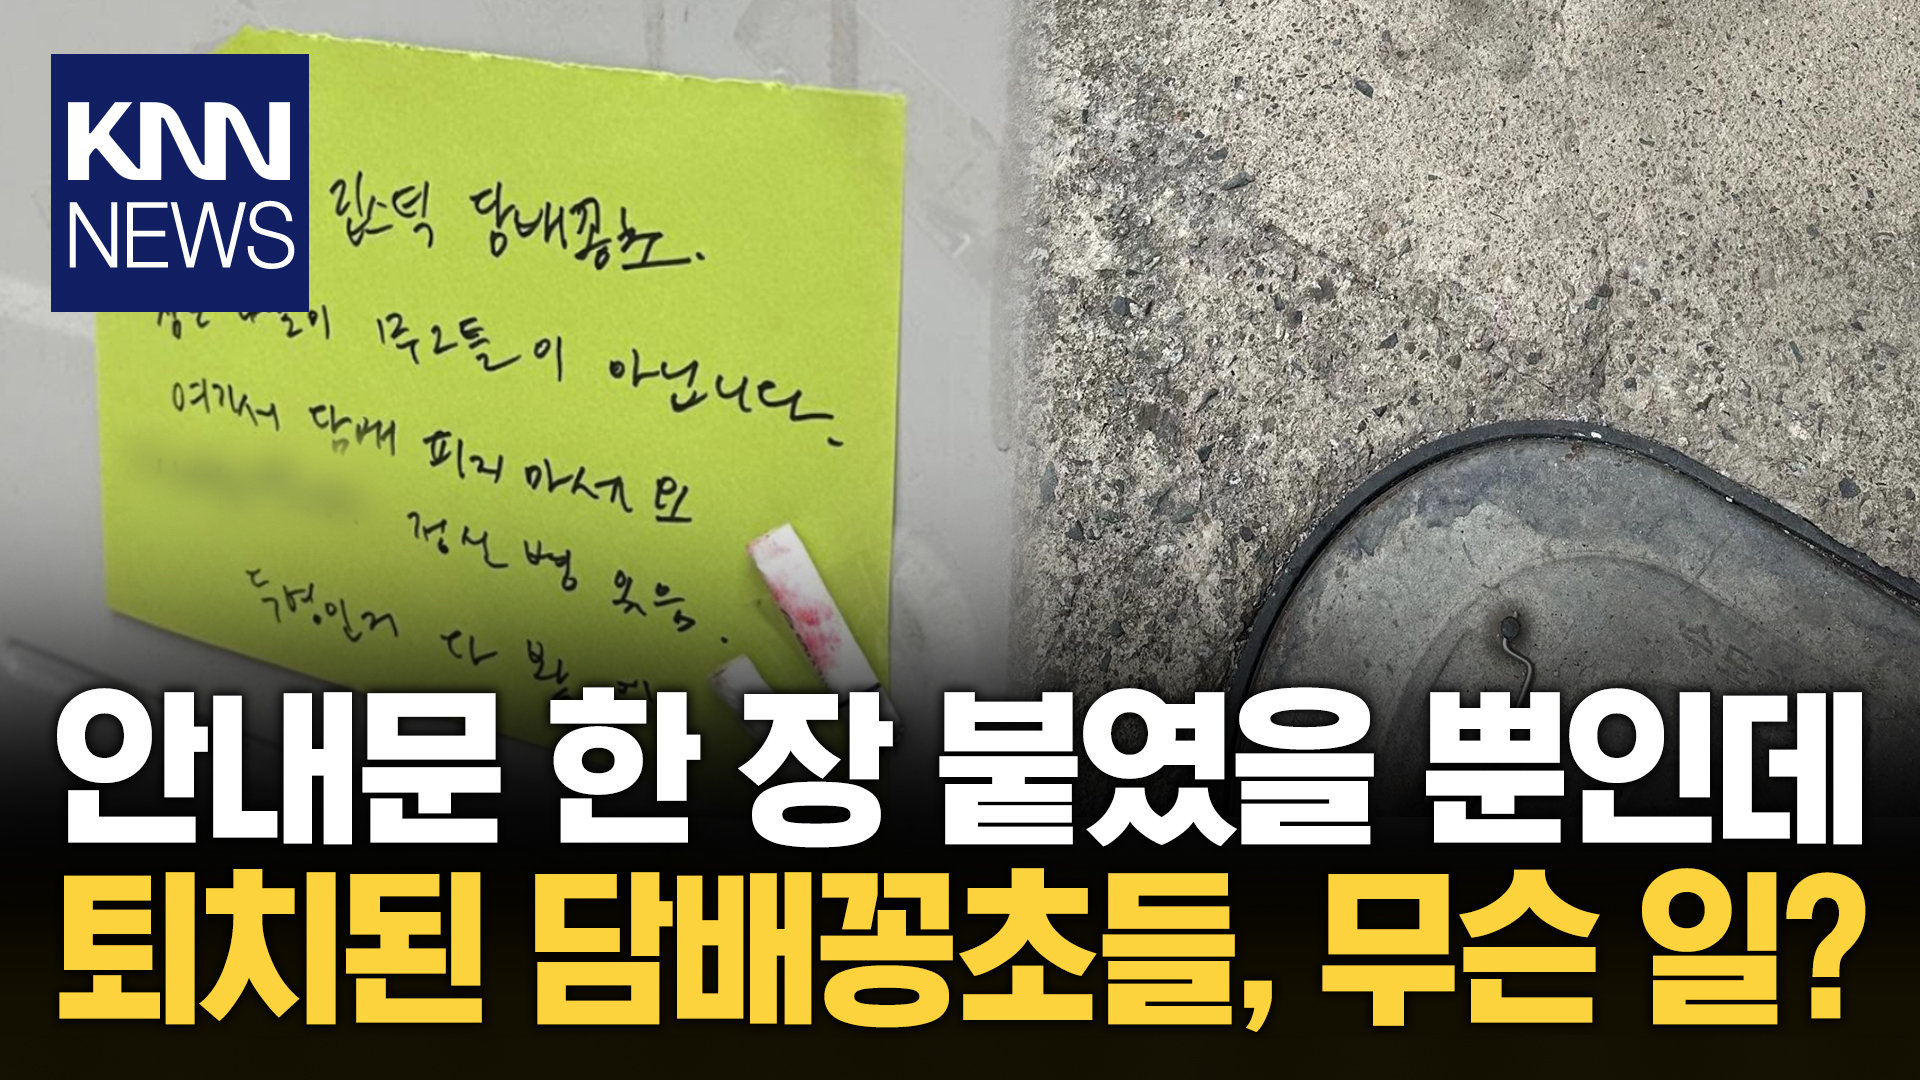 KNN
NEWS
립스틱 담배꽁초.
1루2틀이 아닙니다.
여기서 담배 피지 마세요
정신병 옷음.
다
안내문 한 장 붙였을 뿐인데
퇴치된 담배꽁초들, 무슨 일?